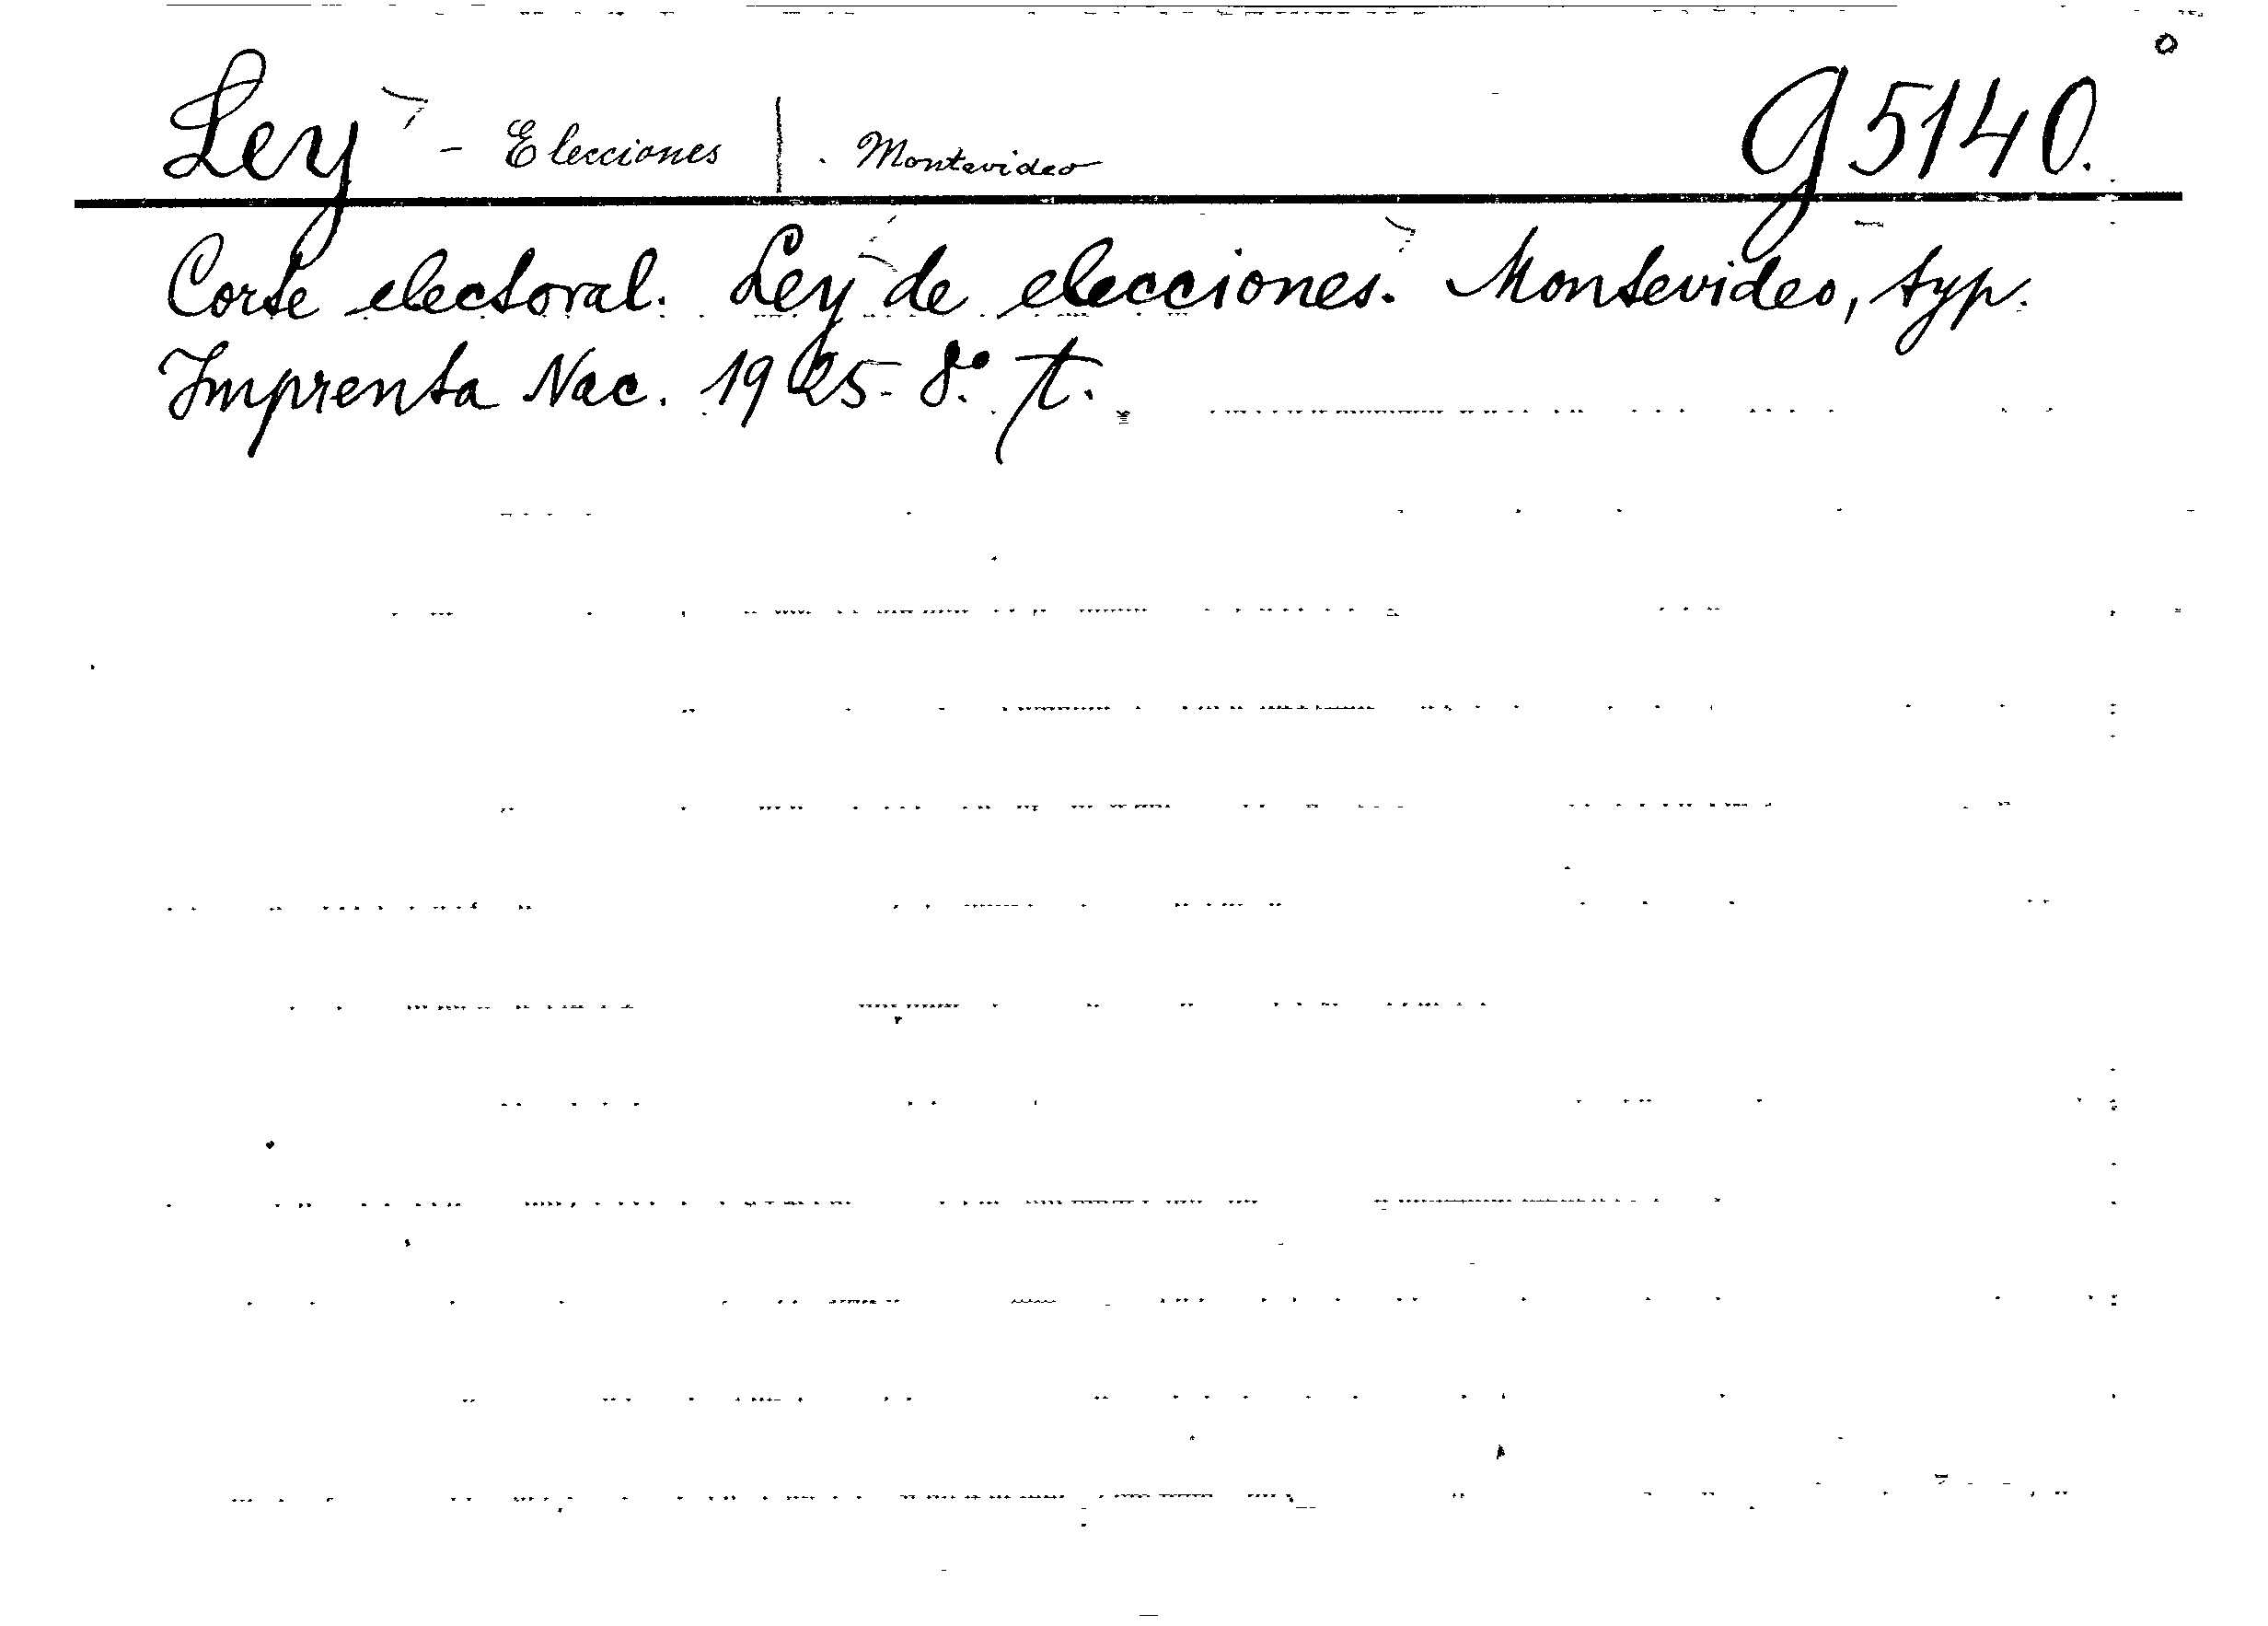 Ley - Elecciones | . Montevideo g 5140.
Corte electoral. Ley de elecciones. Montevideo, typ.
Imprenta Nac. 1925. 8.º t.